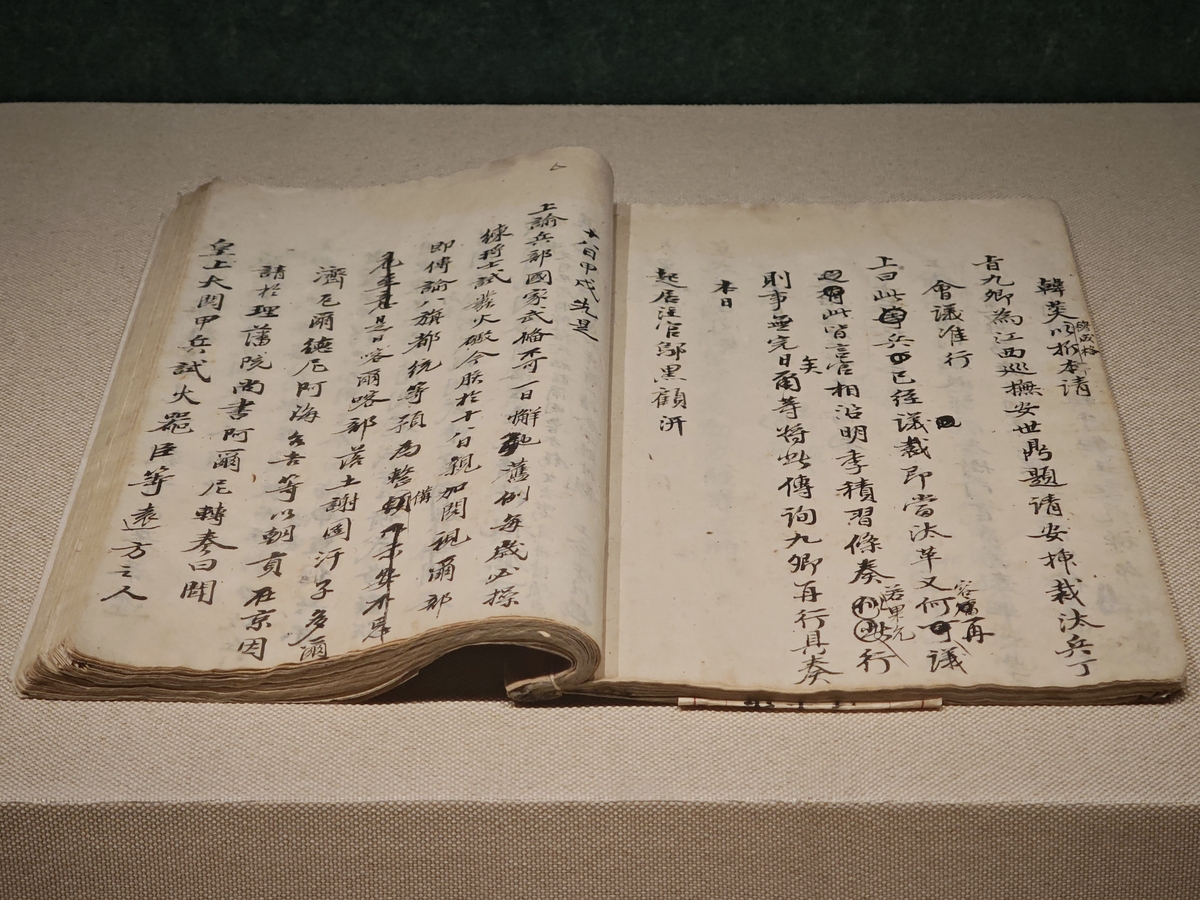 韓菼以折本請
旨九卿為江西巡撫安世鼎題請安插裁汰兵丁
會議准行
上曰此兵已經議裁即當汰革又何容再議
此皆言官相沿明季積習條奏若畢允行
則事無完日矣爾等將此傳詢九卿再行具奏
本日
起居注官鄔黑顧汧
十八日甲戌先是
上諭兵部國家武備不可一日懈弛舊例每歲必操
練將士試放火礮今朕於十八日親加閱視爾部
即傳諭八旗都統等預為整備
是日喀爾喀部落土謝圖汗子多爾
濟厄爾德尼阿海台吉等以朝貢在京因
請於理藩院尚書阿爾尼轉奏曰聞
皇上大閱甲兵試火器臣等遠方之人